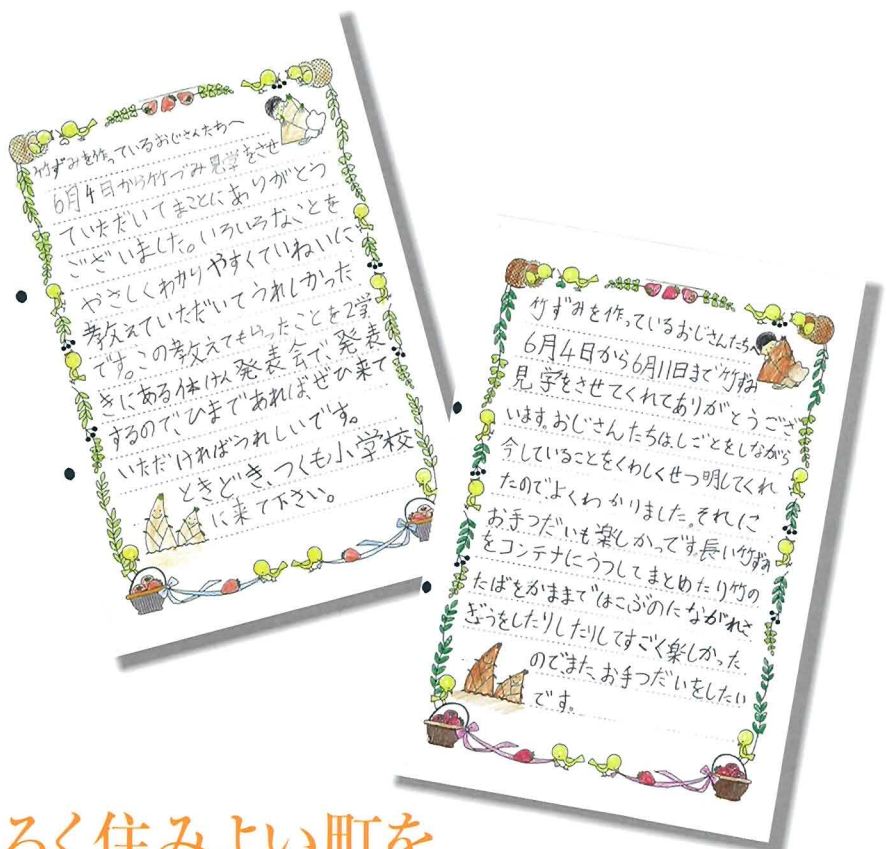 竹ずみを作っているおじさんたちへ
6月4日から竹づみ見学をさせ
ていただいてまことにありがとう
ございました。いろいろなことを
やさしくわかりやすくていねいに
教えていただいてうれしかった
です。この教えてもらったことを2学
きにある体けん発表会で発表
するので、ひまであれば、ぜひ来て
いただければうれしいです。
ときどき、つくも小学校
に来て下さい。
竹ずみを作っているおじさんたちへ
6月4日から6月11日まで竹ずみ
見学をさせてくれてありがとうござ
います。おじさんたちは、しごとをしながら
今していることをくわしくせつ明してくれ
たので、よくわかりました。それに
お手つだいも楽しかっです。長い竹ずみ
をコンテナにうつしてまとめたり竹の
たばをかままではこぶのにながれさ
ぎょうをしたりしたりしてすごく楽しかった
ので、また、お手つだいをしたい
です。
ろく住みよい町を